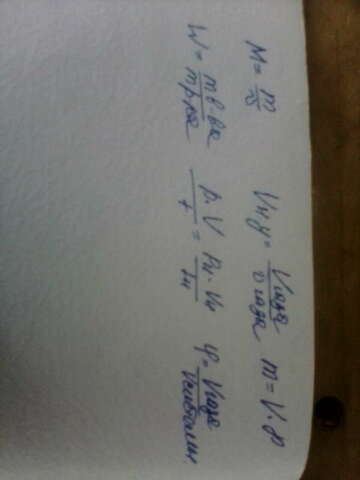 M = m/υ   Vн.у = Vгаза/υ газа   m = V·ρ
W = m в-ва/m р-ра   p·V/t = Pн·Vн/Tн   φ = Vгаза/Vсмеси